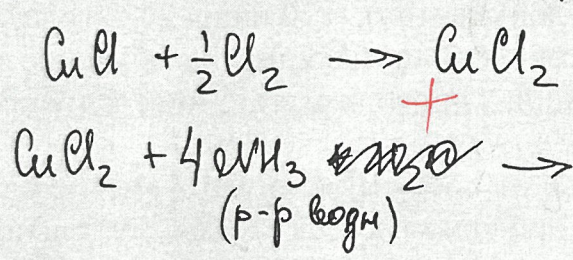 CuCl + 1/2 Cl₂ → CuCl₂
+
CuCl₂ + 4NH₃ →
(р-р водн)